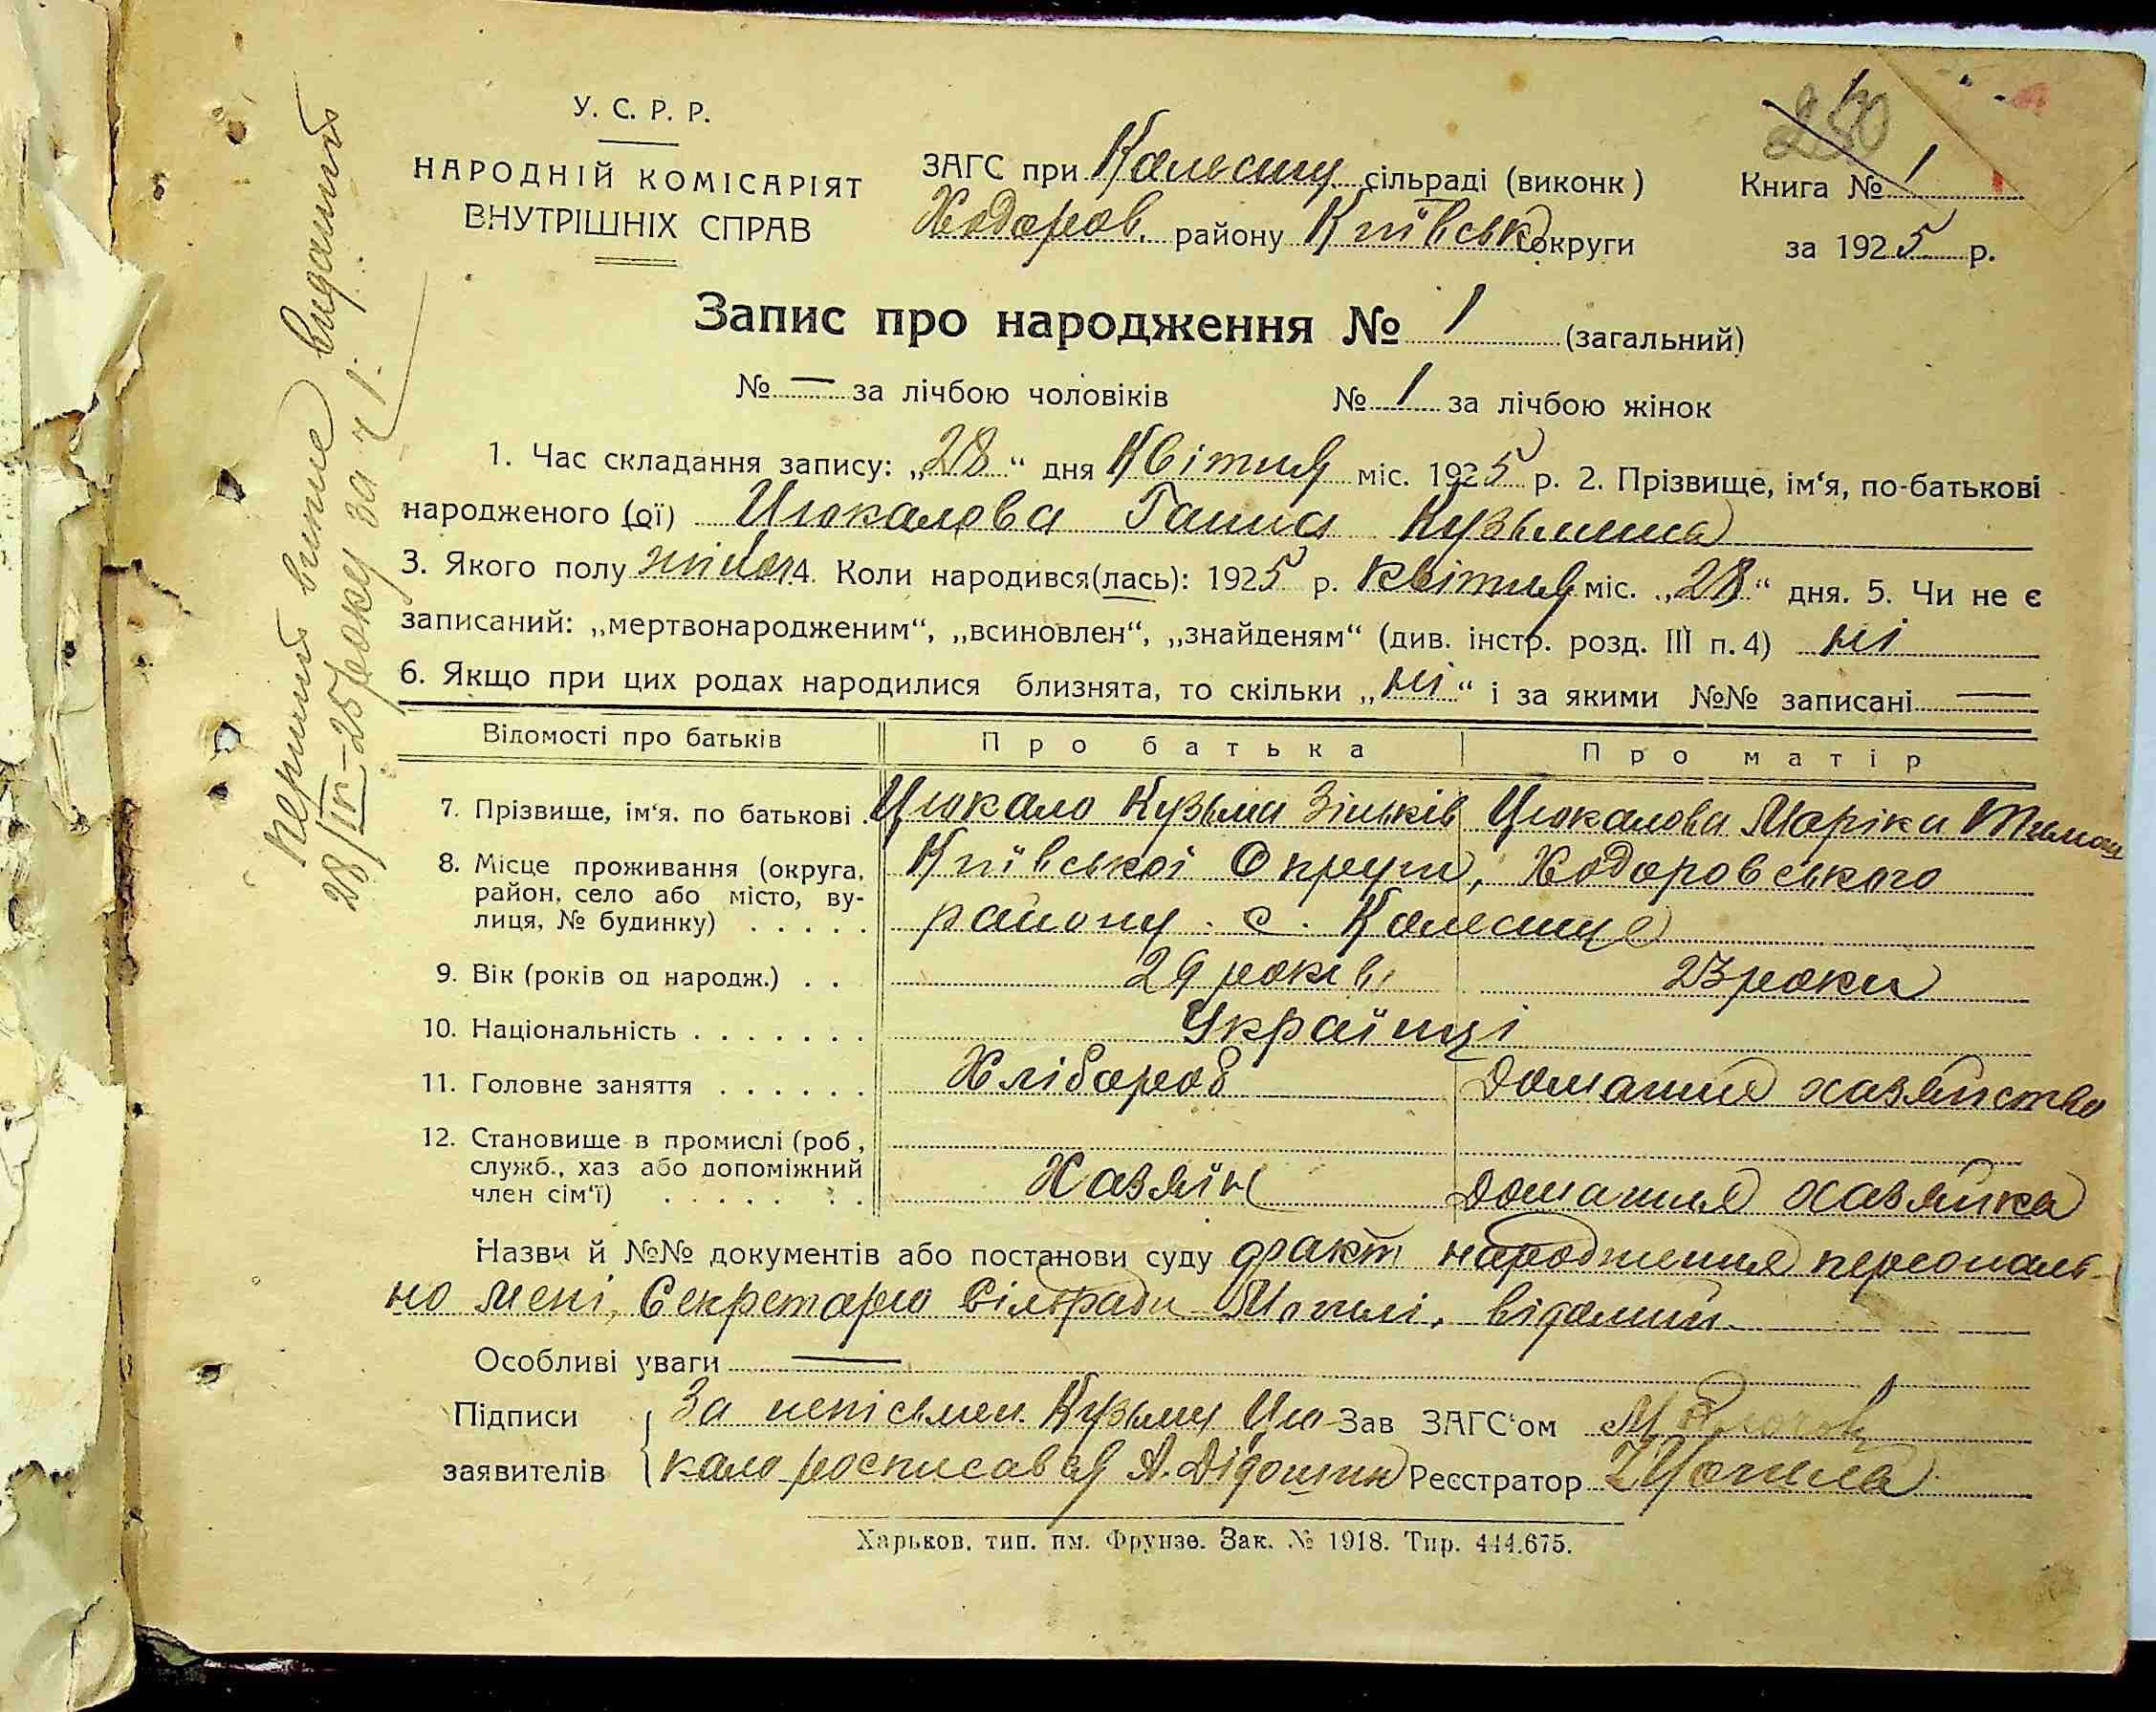 У. С. Р. Р.
НАРОДНІЙ КОМІСАРІЯТ
ВНУТРІШНІХ СПРАВ
ЗАГС при сільраді (виконк)
Ходоров. району Київськ округи
250
Книга № 1
за 1925 р.
Запис про народження № 1 (загальний)
№ — за лічбою чоловіків № 1 за лічбою жінок
1. Час складання запису: „28“ дня Квітня міс. 1925 р. 2. Прізвище, ім‘я, по-батькові
народженого (ої) Цюкалова Ганна Кузьмина
3. Якого полу жіноч 4. Коли народився(лась): 1925 р. Квітня міс. „28“ дня. 5. Чи не є
записаний: „мертвонародженим“, „всиновлен“, „знайденям“ (див. інстр. розд. III п. 4) ні
6. Якщо при цих родах народилися близнята, то скільки „ні“ і за якими №№ записані —
Відомості про батьків Про батька Про матір
7. Прізвище, ім‘я. по батькові . Цюкало Кузьма Зіньків Цюкалова Маріка
8. Місце проживання (округа, район, село або місто, вулиця, № будинку) . . . . .
Київської Округи, Ходоровського
району. с.
9. Вік (років од народж.) . . 29 років 23 роки
10. Національність . . . . . . . Українці
11. Головне заняття . . . . . . Хлібороб Домашнє хазяйство
12. Становище в промислі (роб, служб., хаз або допоміжний член сім‘ї) . . . . . . .
Хазяїн Домашня хазяйка
Назви й №№ документів або постанови суду факт народження персональ-
но мені, Секретарю Сільради Могилі, відомий.
Особливі уваги —
Підписи заявителів
За неписьмен. Кузьму Цю-
кало росписався А.
Зав ЗАГС‘ом
Реєстратор Могила
Харьков. тип. им. Фрунзе. Зак. № 1918. Тир. 444.675.
Перший випис виданий
28/IV-25 року за ч 1.